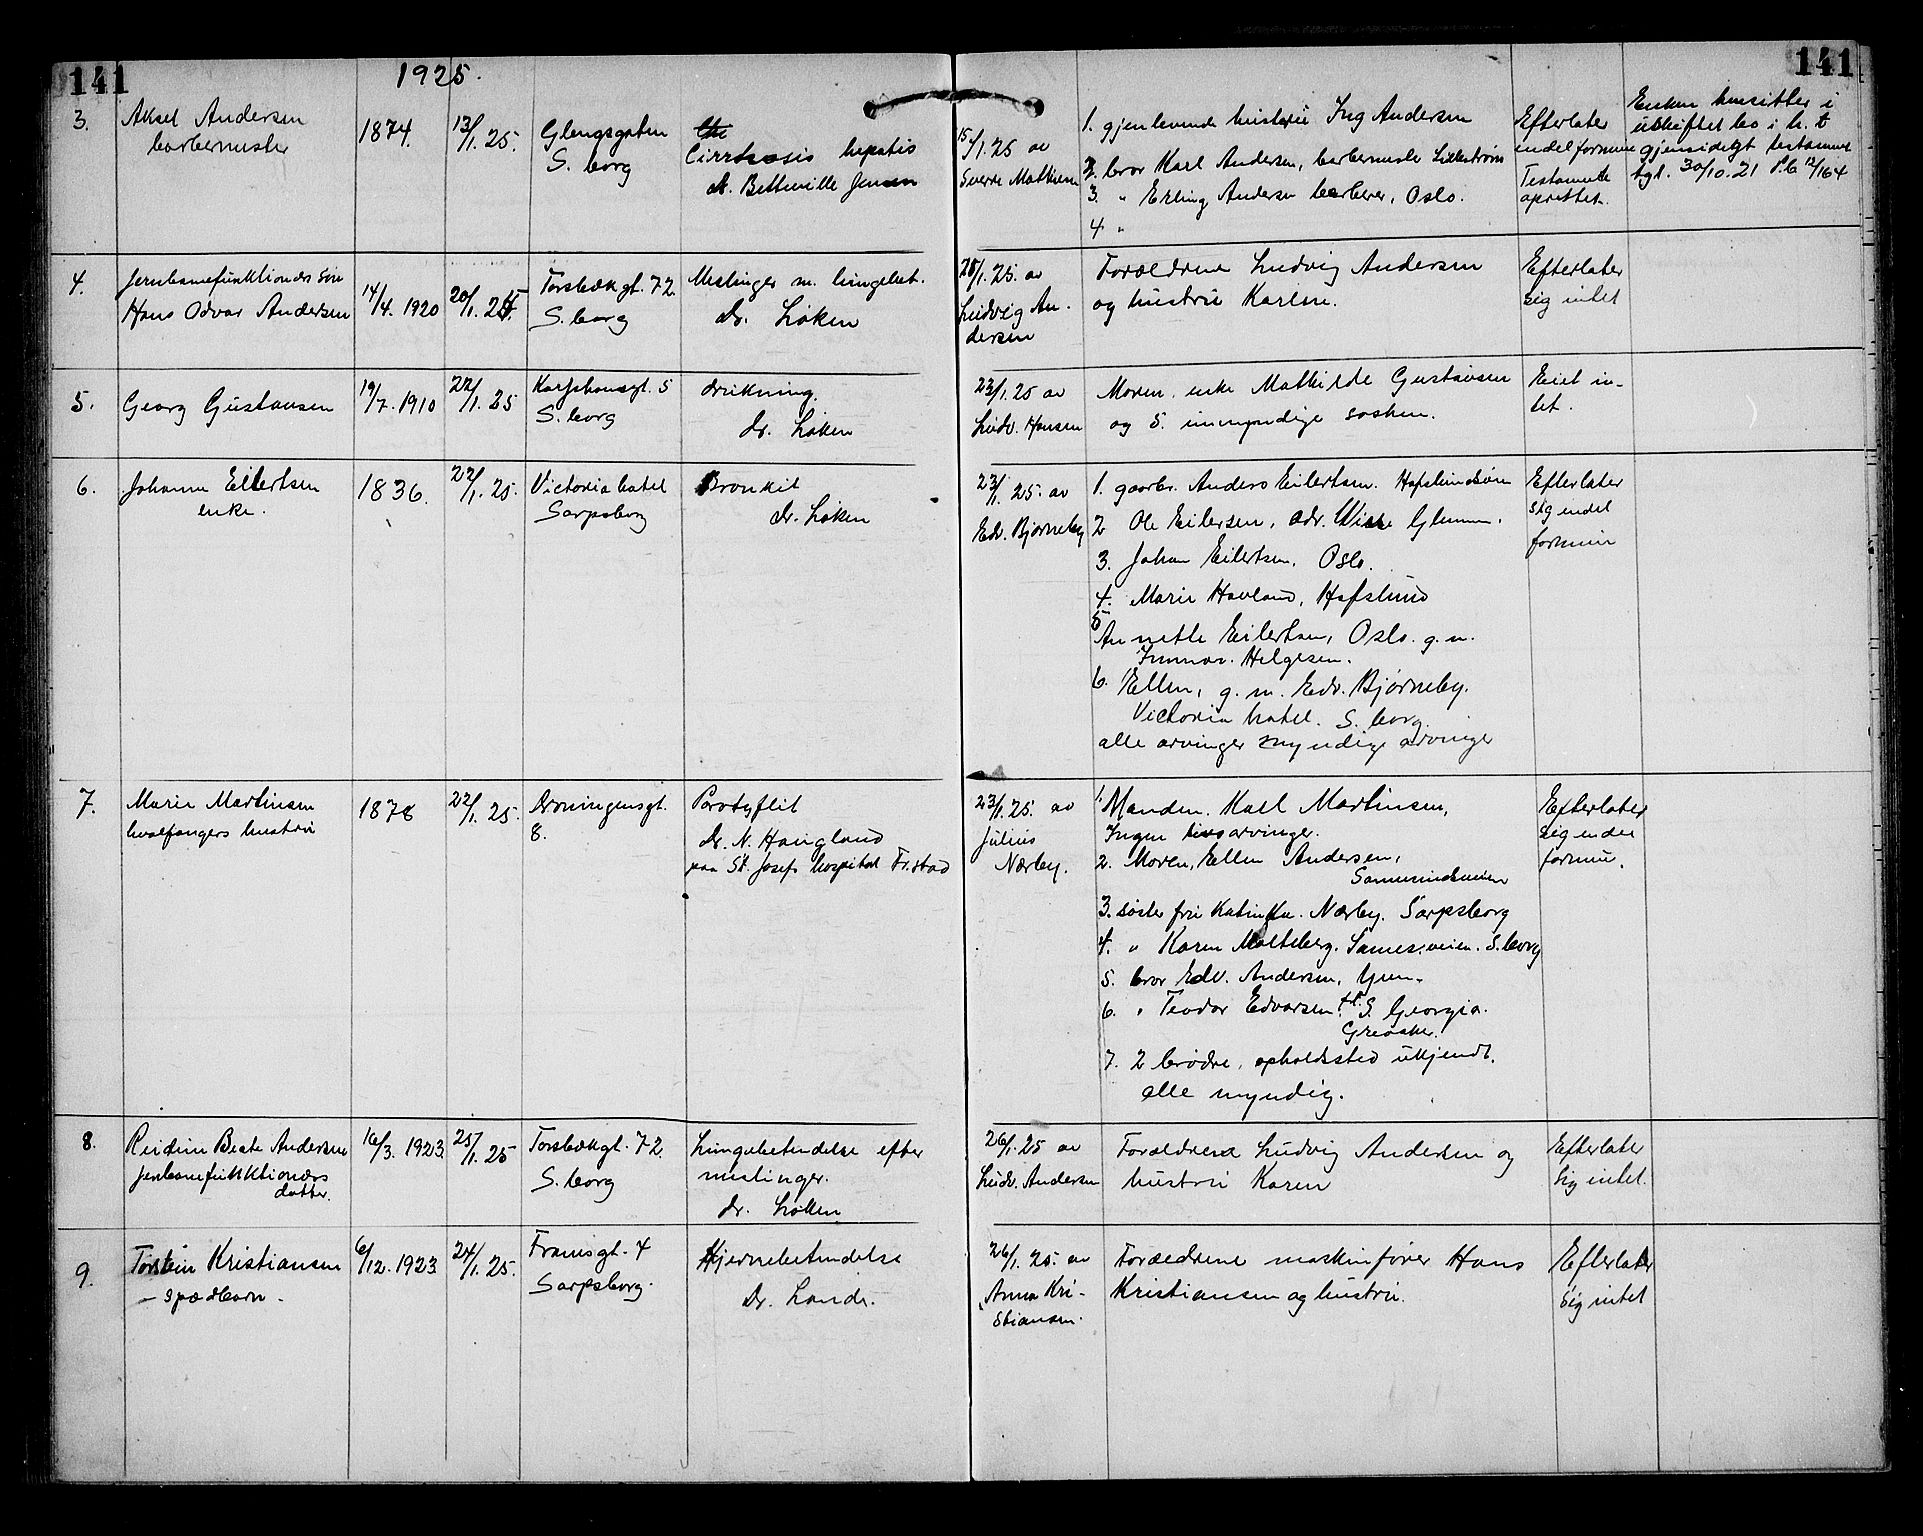 141
1925.
141
3.
Aksel Andersen
barbermester
1874.
13/1. 25.
Glengsgaten
S. borg
Cirrhosis hepatis
dr. Betteville Jensen
15/1. 25 av
Sverre Mathisen
1. gjenlevende hustru Ing Andersen
2. bror Karl Andersen, barbermester Lillestrøm
3. " Erling Andersen barberer, Oslo.
4 "
Efterlater
endel formue
Testamente
oprettet.
Enken hensitter i
uskiftet bo i h. t
gjensidigt testamente
tgl. 30/10. 21 P.b 12/164
4.
Jernbanefunktionær søn
Hans Odvar Andersen
14/4. 1920
20/1. 25.
Torsbækgt. 72
S. borg
Meslinger m. lungebet.
Dr. Løken
20/1. 25. av
Ludvig An-
dersen
Forældrene Ludvig Andersen
og hustru Karen.
Efterlater
sig intet
5.
Georg Gustavsen
19/7. 1910
22/1. 25
Karlshusgt. 5
S. borg
drukning.
dr. Løken
23/1. 25 av
Ludv. Hansen
Moren, enke Mathilde Gustavsen
og 5. umyndige søsken.
Eiet in-
tet.
6.
Johanne Eilertsen
enke.
1836.
22/1. 25.
Victoria hotel
Sarpsborg
Bronkit
dr. Løken
23/1. 25. av
Edv. Bjørneby
1. gaarbr. Anders Eilertsen. Hafslundsøen
2 Ole Eilersen, adr. Wiste Glemmen.
3. Johan Eilertsen, Oslo.
4. Marie Hovland, Hafslund
5 Annette Eilertsen, Oslo. g. m.
Gunnar. Helgesen.
6. Ellen, g. m. Edv. Bjørneby.
Victoria hotel. S. borg.
alle arvinger myndige arvinger
Efterlater
sig endel
formue
7.
Marie Martinsen
hvalfangers hustru
1878
22/1. 25.
Droningensgt.
8.
Parotyflit
Dr. N. Haugland
paa St. Josefs hospital Fr.stad
23/1. 25. av
Julius
Nærby.
1. Manden. Karl Martinsen,
Ingen livsarvinger.
2. Moren, Ellen Andersen,
Sannesundsveien
3. søster fru Katinka. Nærby. Sarpsborg
4. " Karen Molteberg. Sannes.veien. S. borg
5. bror Edv. Andersen,
6. " Teodor Edvarsen. t. S. Georgia.
Greåker.
7. 2 brødre, opholdssted ukjendt.
alle myndig.
Efterlater
sig endel
formue.
8.
Reidun Beate Andersen
Jernbanefunktionærs
datter.
16/3. 1923.
25/1. 25
Torsbækgt. 72.
S. borg
Lungebetendelse efter
meslinger.
dr. Løken
26/1. 25 av
Ludv. Andersen
Forældrene Ludvig Andersen og
hustru Karen
Efterlater
sig intet.
9.
Torstein Kristiansen
- spædbarn -
6/12. 1923
24/1. 25.
Framsgt. 4
Sarpsborg.
Hjernebetendelse
Dr. Lande.
26/1. 25. av
Anna Kri-
stiansen.
Forældrene maskinfører Hans
Kristiansen og hustru.
Efterlater
sig intet